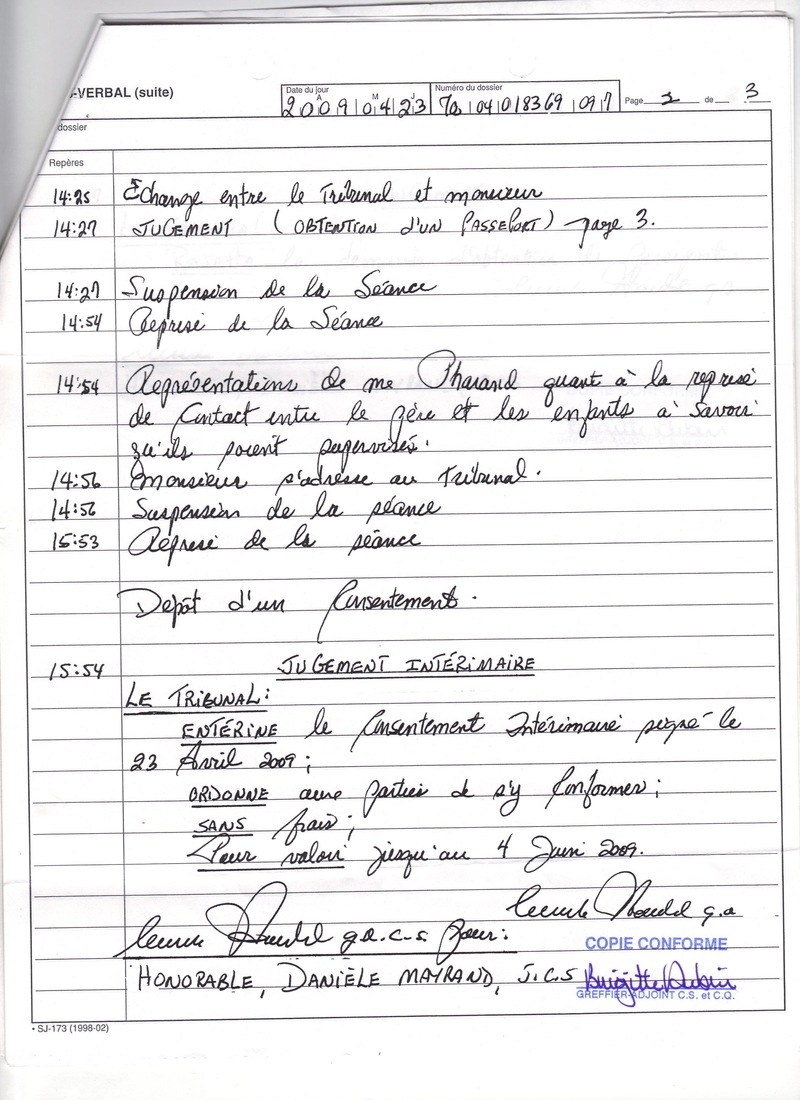 -VERBAL (suite)
Date du jour
A M J
2009 04 23
Numéro du dossier
70 04 018369 097
Page 2 de 3
dossier
Repères
14:25 Echange entre le Tribunal et monsieur
14:27 JUGEMENT (OBTENTION d'UN PASSEPORT) page 3.
14:27 Suspension de la Séance
14:54 Reprise de la Séance
14:54 Représentations de me Pharand quant à la reprise
de Contact entre le père et les enfants à savoir
qu'ils soient supervisés.
14:56 Monsieur s'adresse au Tribunal.
14:56 Suspension de la séance
15:53 Reprise de la séance
Depôt d'un Consentement.
15:54 JUGEMENT INTÉRIMAIRE
LE TRIBUNAL:
ENTÉRINE le Consentement Intérimaire signé le
23 Avril 2009;
ORDONNE aux parties de s'y Conformer;
SANS frais;
Pour valoir jusqu'au 4 Juin 2009.
g.a
g.a.c.s. pour:
HONORABLE, DANIÈLE MAYRAND, J.C.S
COPIE CONFORME
Brigitte Aubin
GREFFIER-ADJOINT C.S. et C.Q.
• SJ-173 (1998-02)